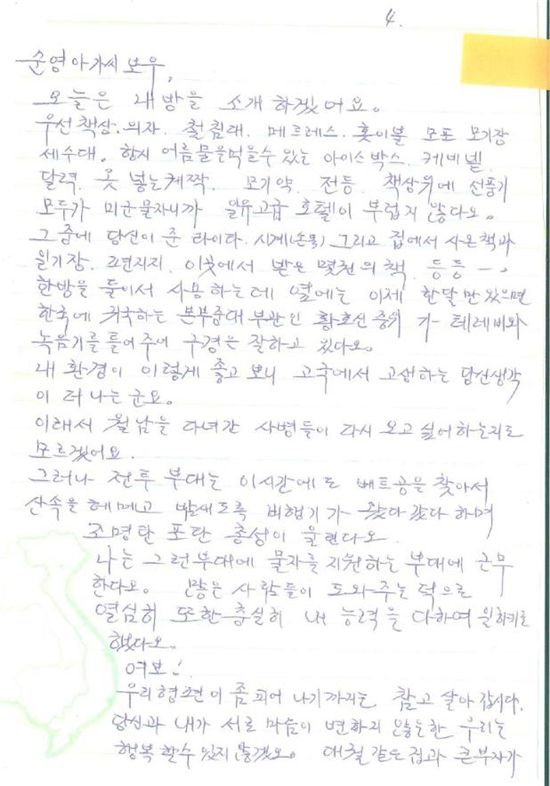 4.
순영 아가씨 보우,
오늘은 내방을 소개 하겠어요.
우선 책상. 의자. 철침대. 메트레스. 홋이불 모포 모기장
세수대. 항시 어름물을 먹을수 있는 아이스박스. 케비넬.
달력. 옷 넣는 궤짝. 모기약. 전등. 책상위에 선풍기
모두가 미군물자니까 일유고급 호텔이 부럽지 않다오.
그중에 당신이 준 타이다. 시계(손목) 그리고 집에서 사온 책과
일기장. 편지지. 이곳에서 받은 몇권의 책. 등등 ----
한방을 둘이서 사용하는데 옆에는 이제 한달만 있으면
한국에 귀국하는 본부중대 부관인 황호신 중위가 테레비와
녹음기를 틀어주어 구경은 잘하고 있다오.
내 환경이 이렇게 좋고 보니 고국에서 고생하는 당신생각
이 더 나는군요.
이래서 월남을 다녀간 사병들이 다시 오고 싶어하는지도
모르겠어요.
그러나 전투부대는 이시간에도 베트공을 찾아서
산속을 헤메고 밤새도록 비행기가 갔다 왔다 하며
조명탄 포탄 총성이 울린다오.
나는 그런부대에 물자를 지원하는 부대에 근무
한다오. 많은 사람들이 도와주는 덕으로
열심히 또한 충실히 내 능력을 다하여 일하기로
했다오.
여보!
우리 형편이 좀 피어나기까지는 참고 살아갑시다.
당신과 내가 서로 마음이 변하지 않는한 우리는
행복할수 있지 않겠오. 대철같은 집과 큰부자가